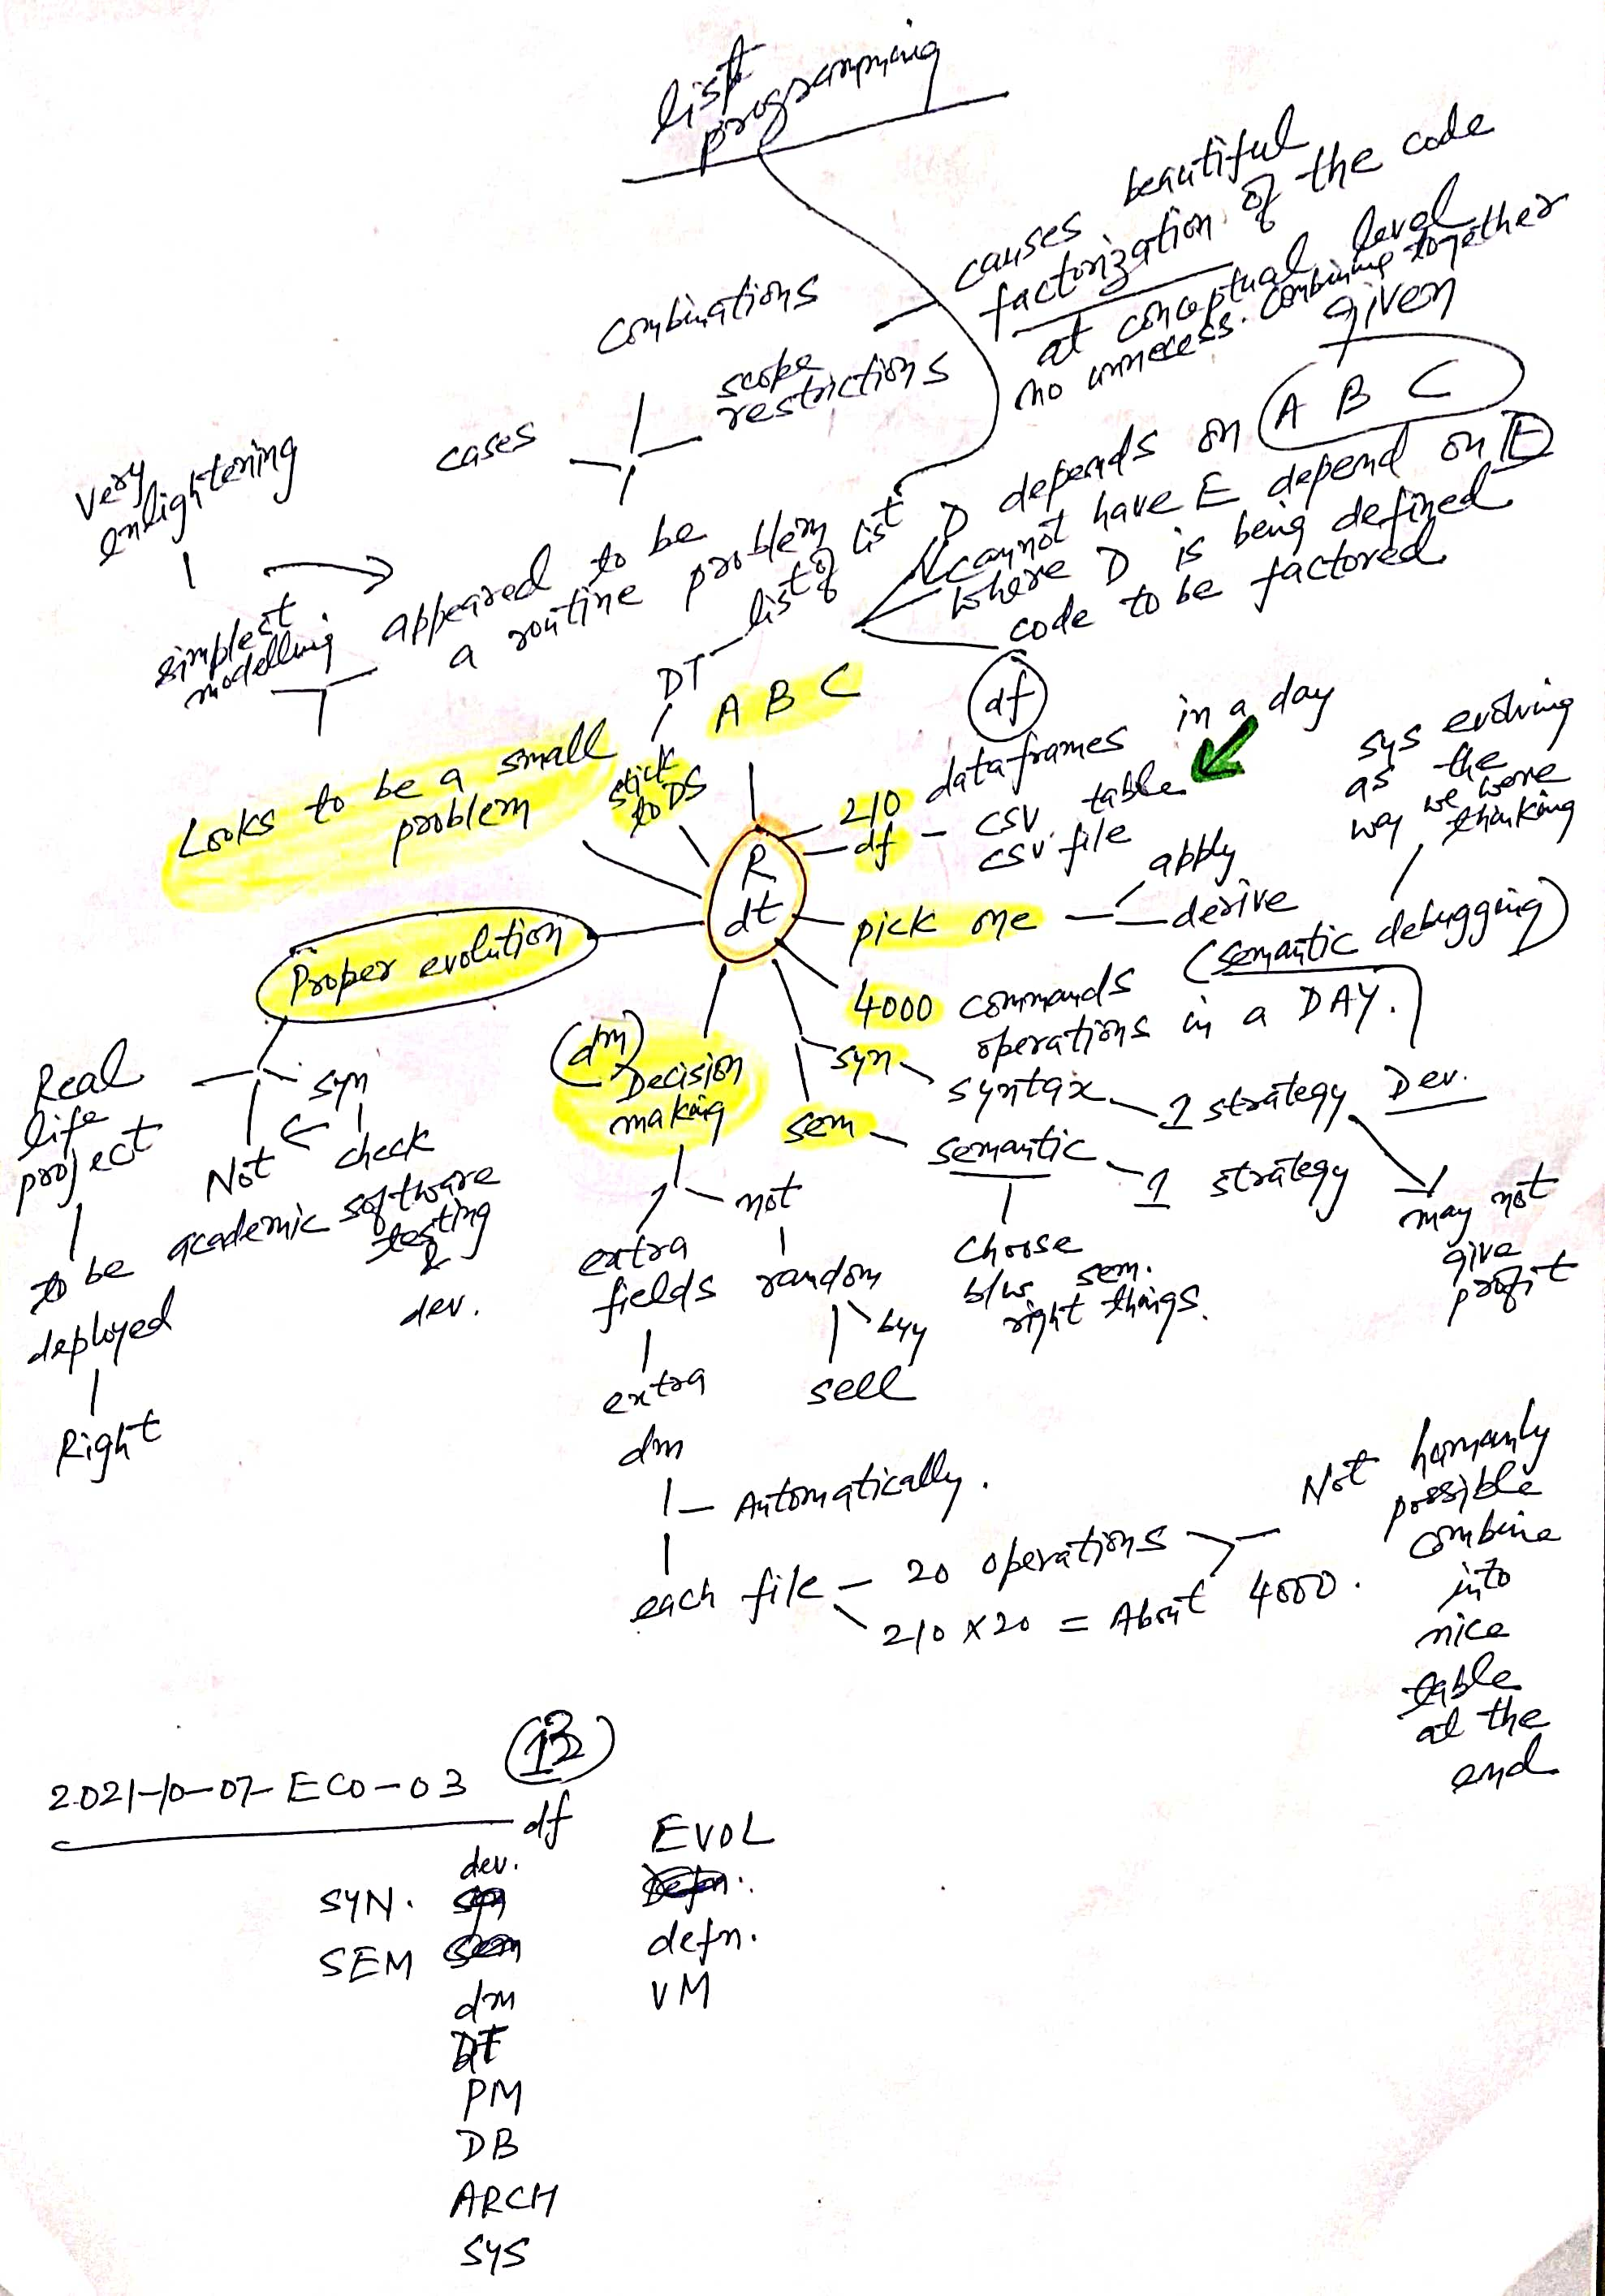 list
programming
causes beautiful
factorization of the code
at conceptual level
no unnecess. combining together
combinations
scope
restrictions
cases
given
A B C
very
enlightening
simplest
modelling
appeared to be
a routine problem
DT
list of list
D depends on
cannot have E depend on E
where D is being defined
code to be factored
df
A B C
stick
to DS
Looks to be a small
problem
R
dt
210 dataframes in a day
df - csv table
csv file
sys evolving
as the
way we were
thinking
pick one
apply
derive
(semantic debugging)
4000 commands
operations in a DAY.
Proper evolution
Real
life
project
to be
deployed
Right
syn
check
Not
academic software
testing
&
dev.
(dm)
Decision
making
extra
fields
extra
dm
not
random
buy
sell
syn
syntax
1 strategy
Dev.
may not
give
profit
sem
semantic
1 strategy
Choose
b/w sem.
right things.
Automatically.
each file - 20 operations
210 x 20 = About 4000.
Not humanly
possible
combine
into
nice
table
at the
end
2021-10-07-ECO-03
df
dev.
SYN.
SEM
dm
DT
PM
DB
ARCH
SYS
EVOL
defn.
VM